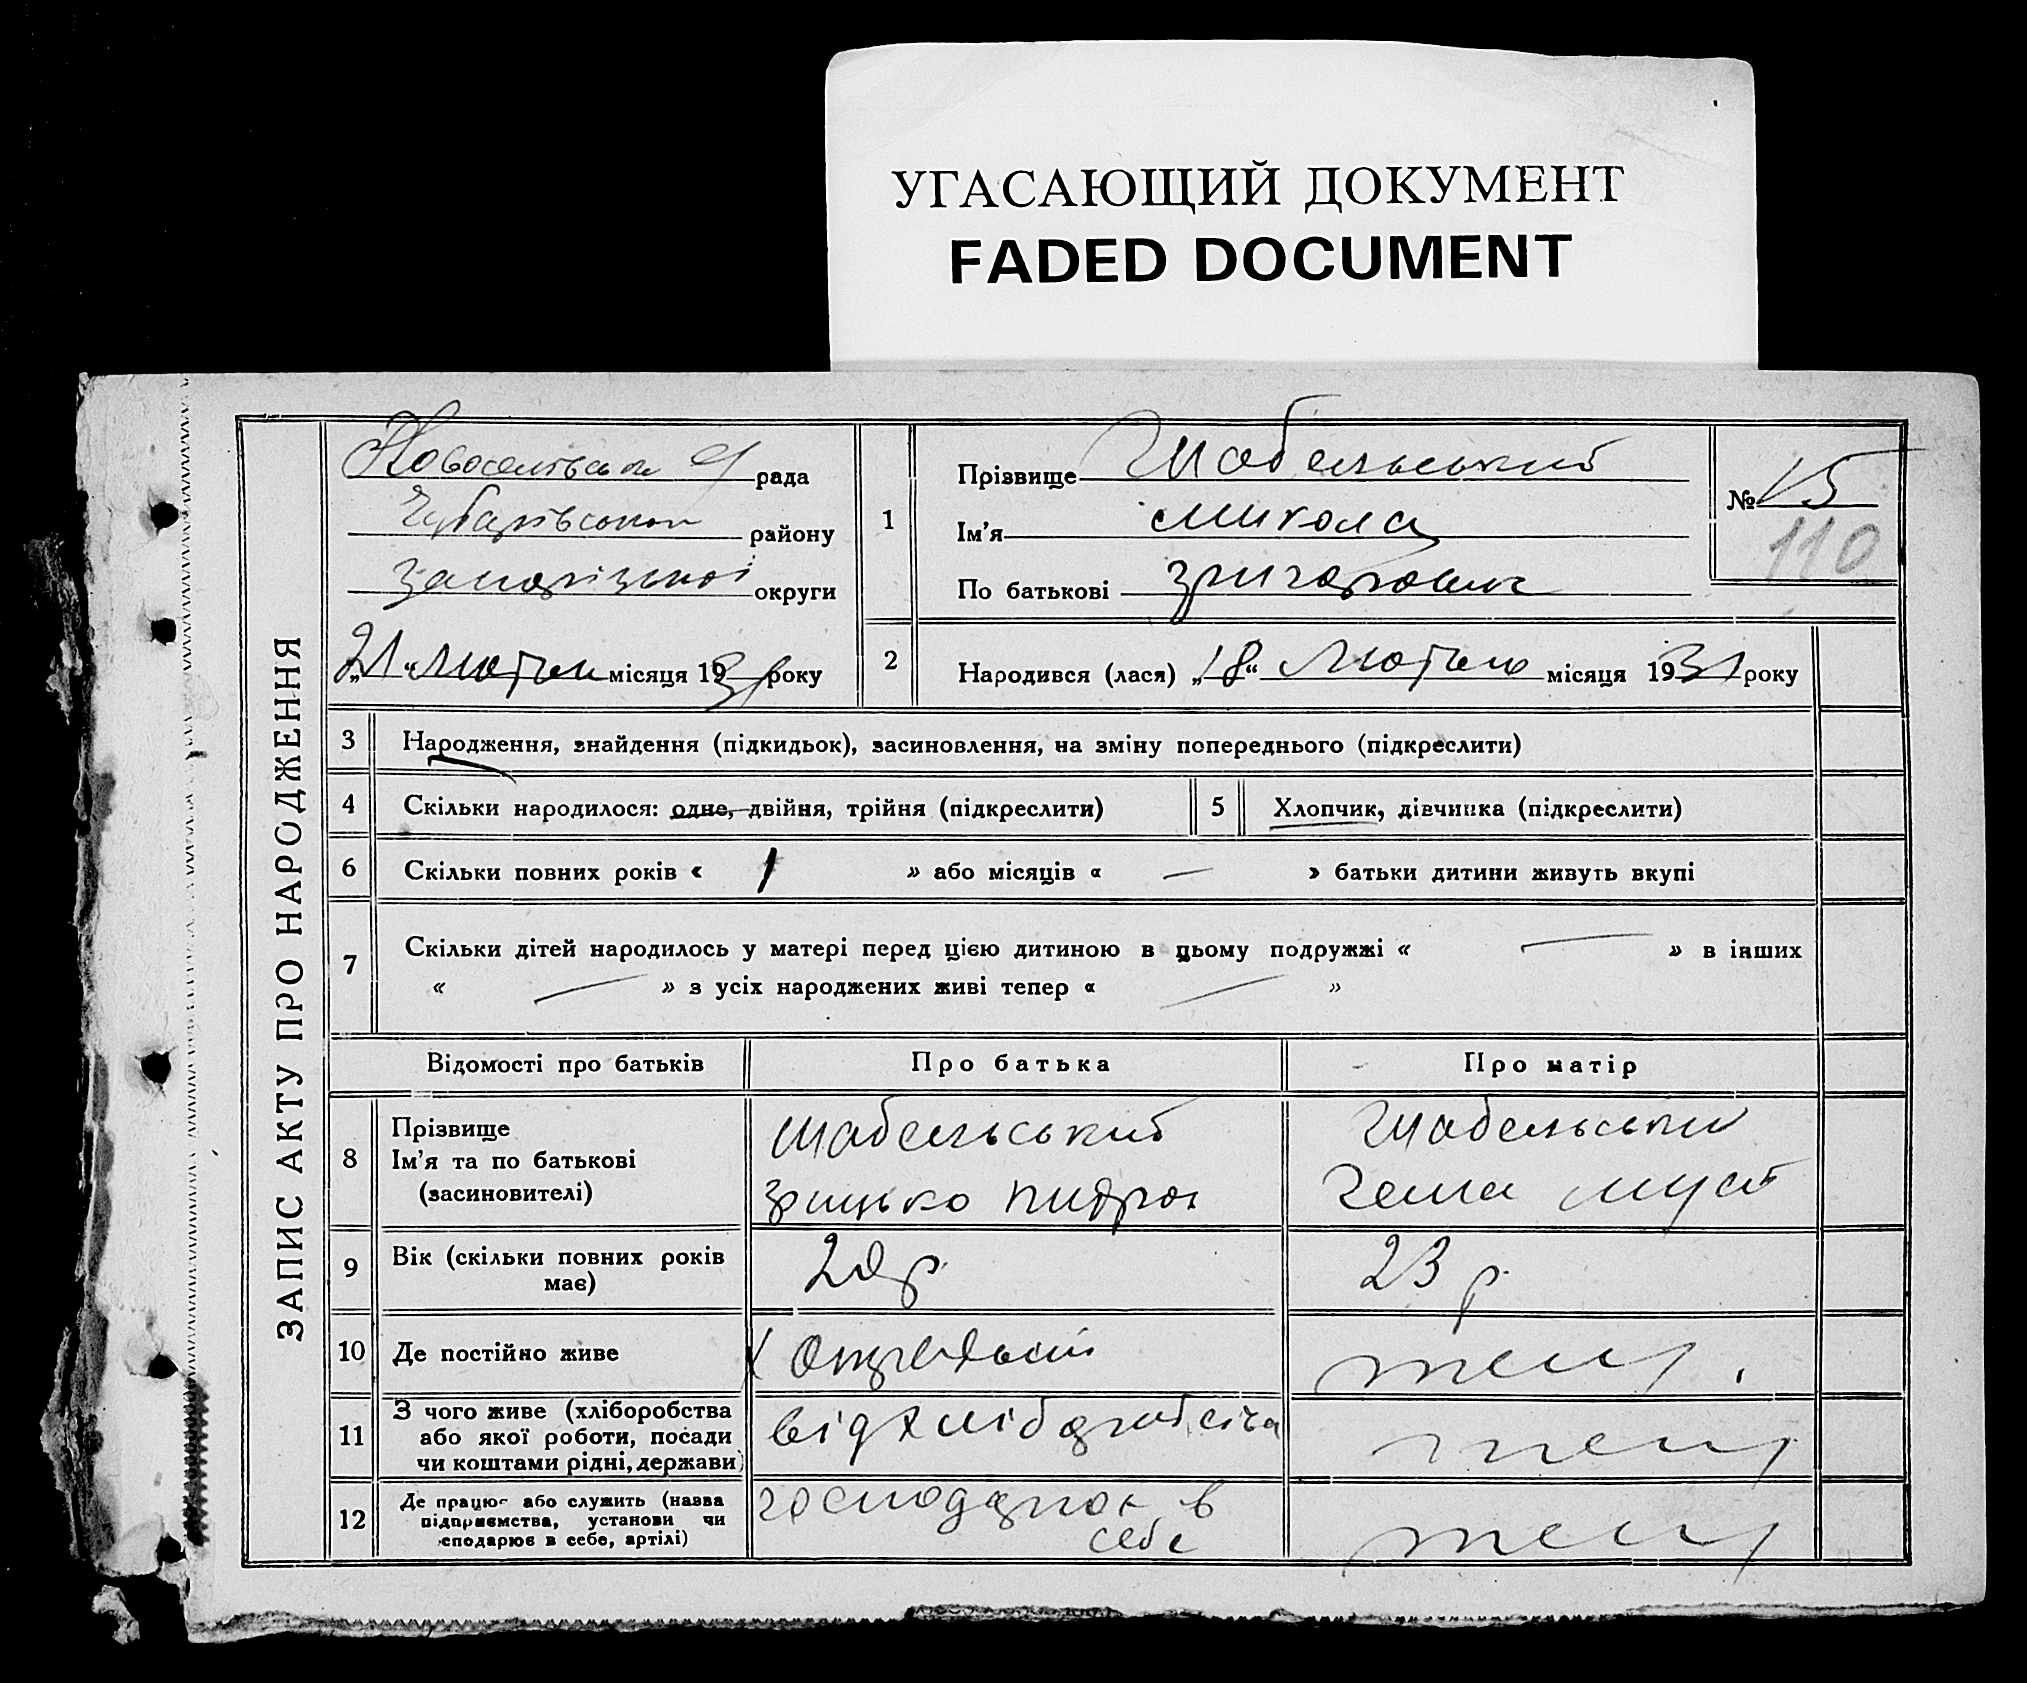 УГАСАЮЩИЙ ДОКУМЕНТ
FADED DOCUMENT
ЗАПИС АКТУ ПРО НАРОДЖЕННЯ
Новоселівська с/рада
Чубарівського району
Запорізької округи
„21“ лютого місяця 1931 року
1
Прізвище Шабельський
Ім'я Микола
По батькові Григорович
№ 15
110
2
Народився (лася) „18“ Лютого місяця 1931 року
3 Народження, знайдення (підкидьок), засиновлення, на зміну попереднього (підкреслити)
4 Скільки народилося: одне, двійня, трійня (підкреслити)
5 Хлопчик, дівчинка (підкреслити)
6 Скільки повних років « 1 » або місяців « — » батьки дитини живуть вкупі
7 Скільки дітей народилось у матері перед цією дитиною в цьому подружжі « — » в інших
« — » з усіх народжених живі тепер « — »
Відомості про батьків Про батька Про матір
8 Прізвище
Ім'я та по батькові
(засиновителі)
Шабельський
Грицько
Шабельська
9 Вік (скільки повних років
має)
20 р 23 р.
10 Де постійно живе
теж.
11 З чого живе (хліборобства
або якої роботи, посади
чи коштами рідні, держави)
від хліборобства
теж
12 Де працює або служить (назва
підприємства, установи чи
сподарює в себе, артілі)
господарює в
себе
теж